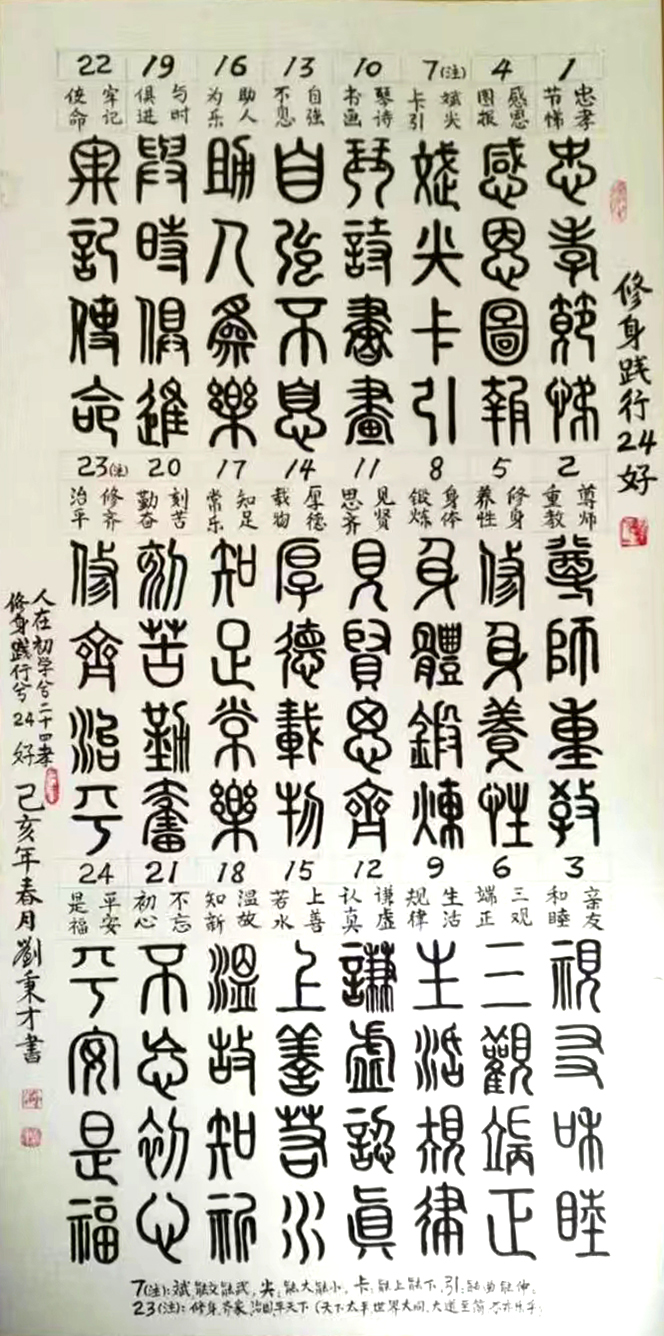 修身践行24好
1
忠孝
节悌
忠孝節悌
2
尊师
重教
尊師重教
3
亲友
和睦
視友和睦
4
感恩
图报
感恩圖報
5
修身
养性
修身養性
6
三观
端正
三觀端正
7(注)
斌尖
卡引
斌尖卡引
8
身体
锻炼
身體鍛煉
9
生活
规律
生活規律
10
琴诗
书画
琴詩書畫
11
见贤
思齐
見賢思齊
12
谦虚
认真
謙虛認真
13
自强
不息
自強不息
14
厚德
载物
厚德載物
15
上善
若水
上善若水
16
助人
为乐
助人為樂
17
知足
常乐
知足常樂
18
温故
知新
溫故知新
19
与时
俱进
與時俱進
20
刻苦
勤奋
刻苦勤奮
21
不忘
初心
不忘初心
22
牢记
使命
牢記使命
23(注)
修齐
治平
修齊治平
24
平安
是福
平安是福
人在初学兮二十四孝
修身践行兮24好
己亥年春月劉秉才書
7(注):斌,能文能武,尖:能大能小,卡:能上能下,引:能曲能伸。
23(注):修身.齐家.治国.平天下(天下太平.世界大同.大道至简.